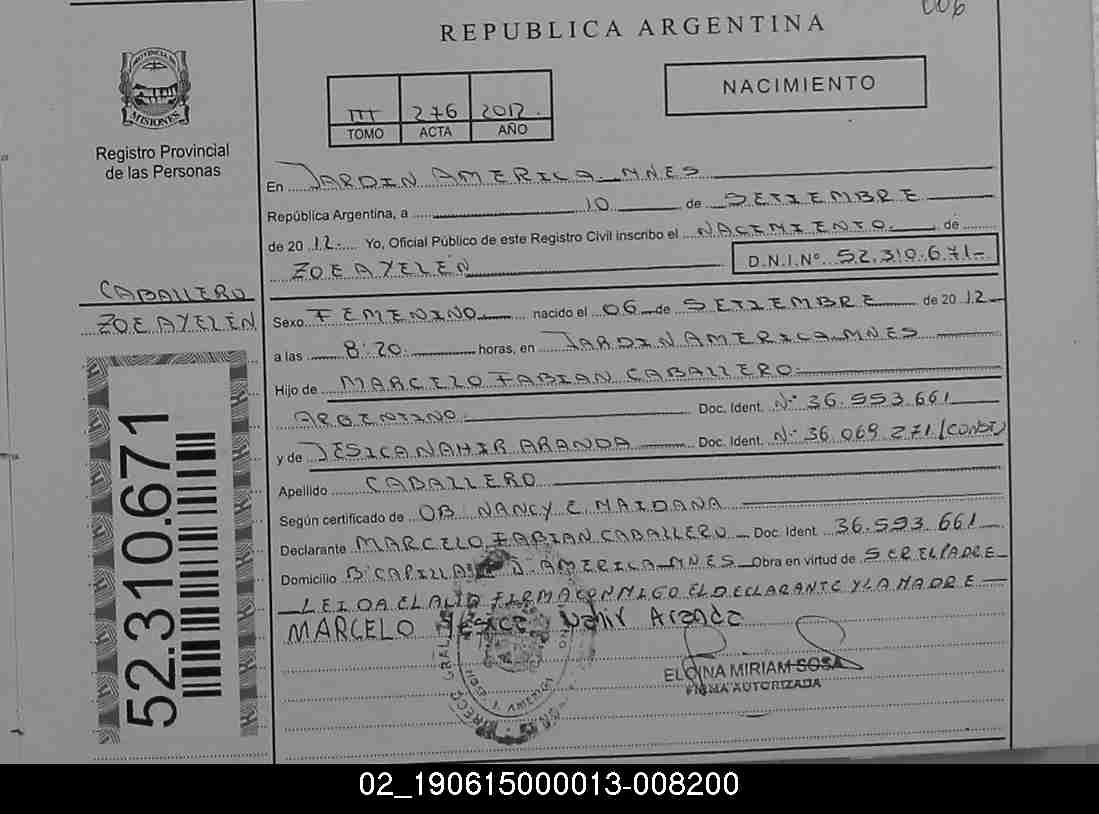 006
REPUBLICA ARGENTINA
PROVINCIA DE
MISIONES
Registro Provincial
de las Personas
III 276 2012.
TOMO ACTA AÑO
NACIMIENTO
En JARDIN AMERICA MNES
República Argentina, a 10 de SETIEMBRE
de 2012. Yo, Oficial Público de este Registro Civil inscribo el NACIMIENTO de
ZOE AYELEN D.N.I.Nº 52.310.671-
CABALLERO
ZOE AYELEN
Sexo FEMENINO nacido el 06 de SETIEMBRE de 2012
a las 8:20 horas, en JARDIN AMERICA MNES
Hijo de MARCELO FABIAN CABALLERO
ARGENTINO Doc. Ident. Nº 36.553.661
y de JESICA NAHIR ARANDA Doc. Ident. Nº 36.069.271/(CONSTE)
Apellido CABALLERO
Según certificado de OB NANCY E MAIDANA
Declarante MARCELO FABIAN CABALLERO Doc. Ident. 36.593.661
Domicilio Bº CAPILLA J. AMERICA MNES Obra en virtud de SER EL PADRE
LEIDA EL ACTA FIRMA CONMIGO EL DECLARANTE Y LA MADRE
MARCELO Nahir Aranda
ELOINA MIRIAM SOSA
FIRMA AUTORIZADA
52.310.671
02_190615000013-008200